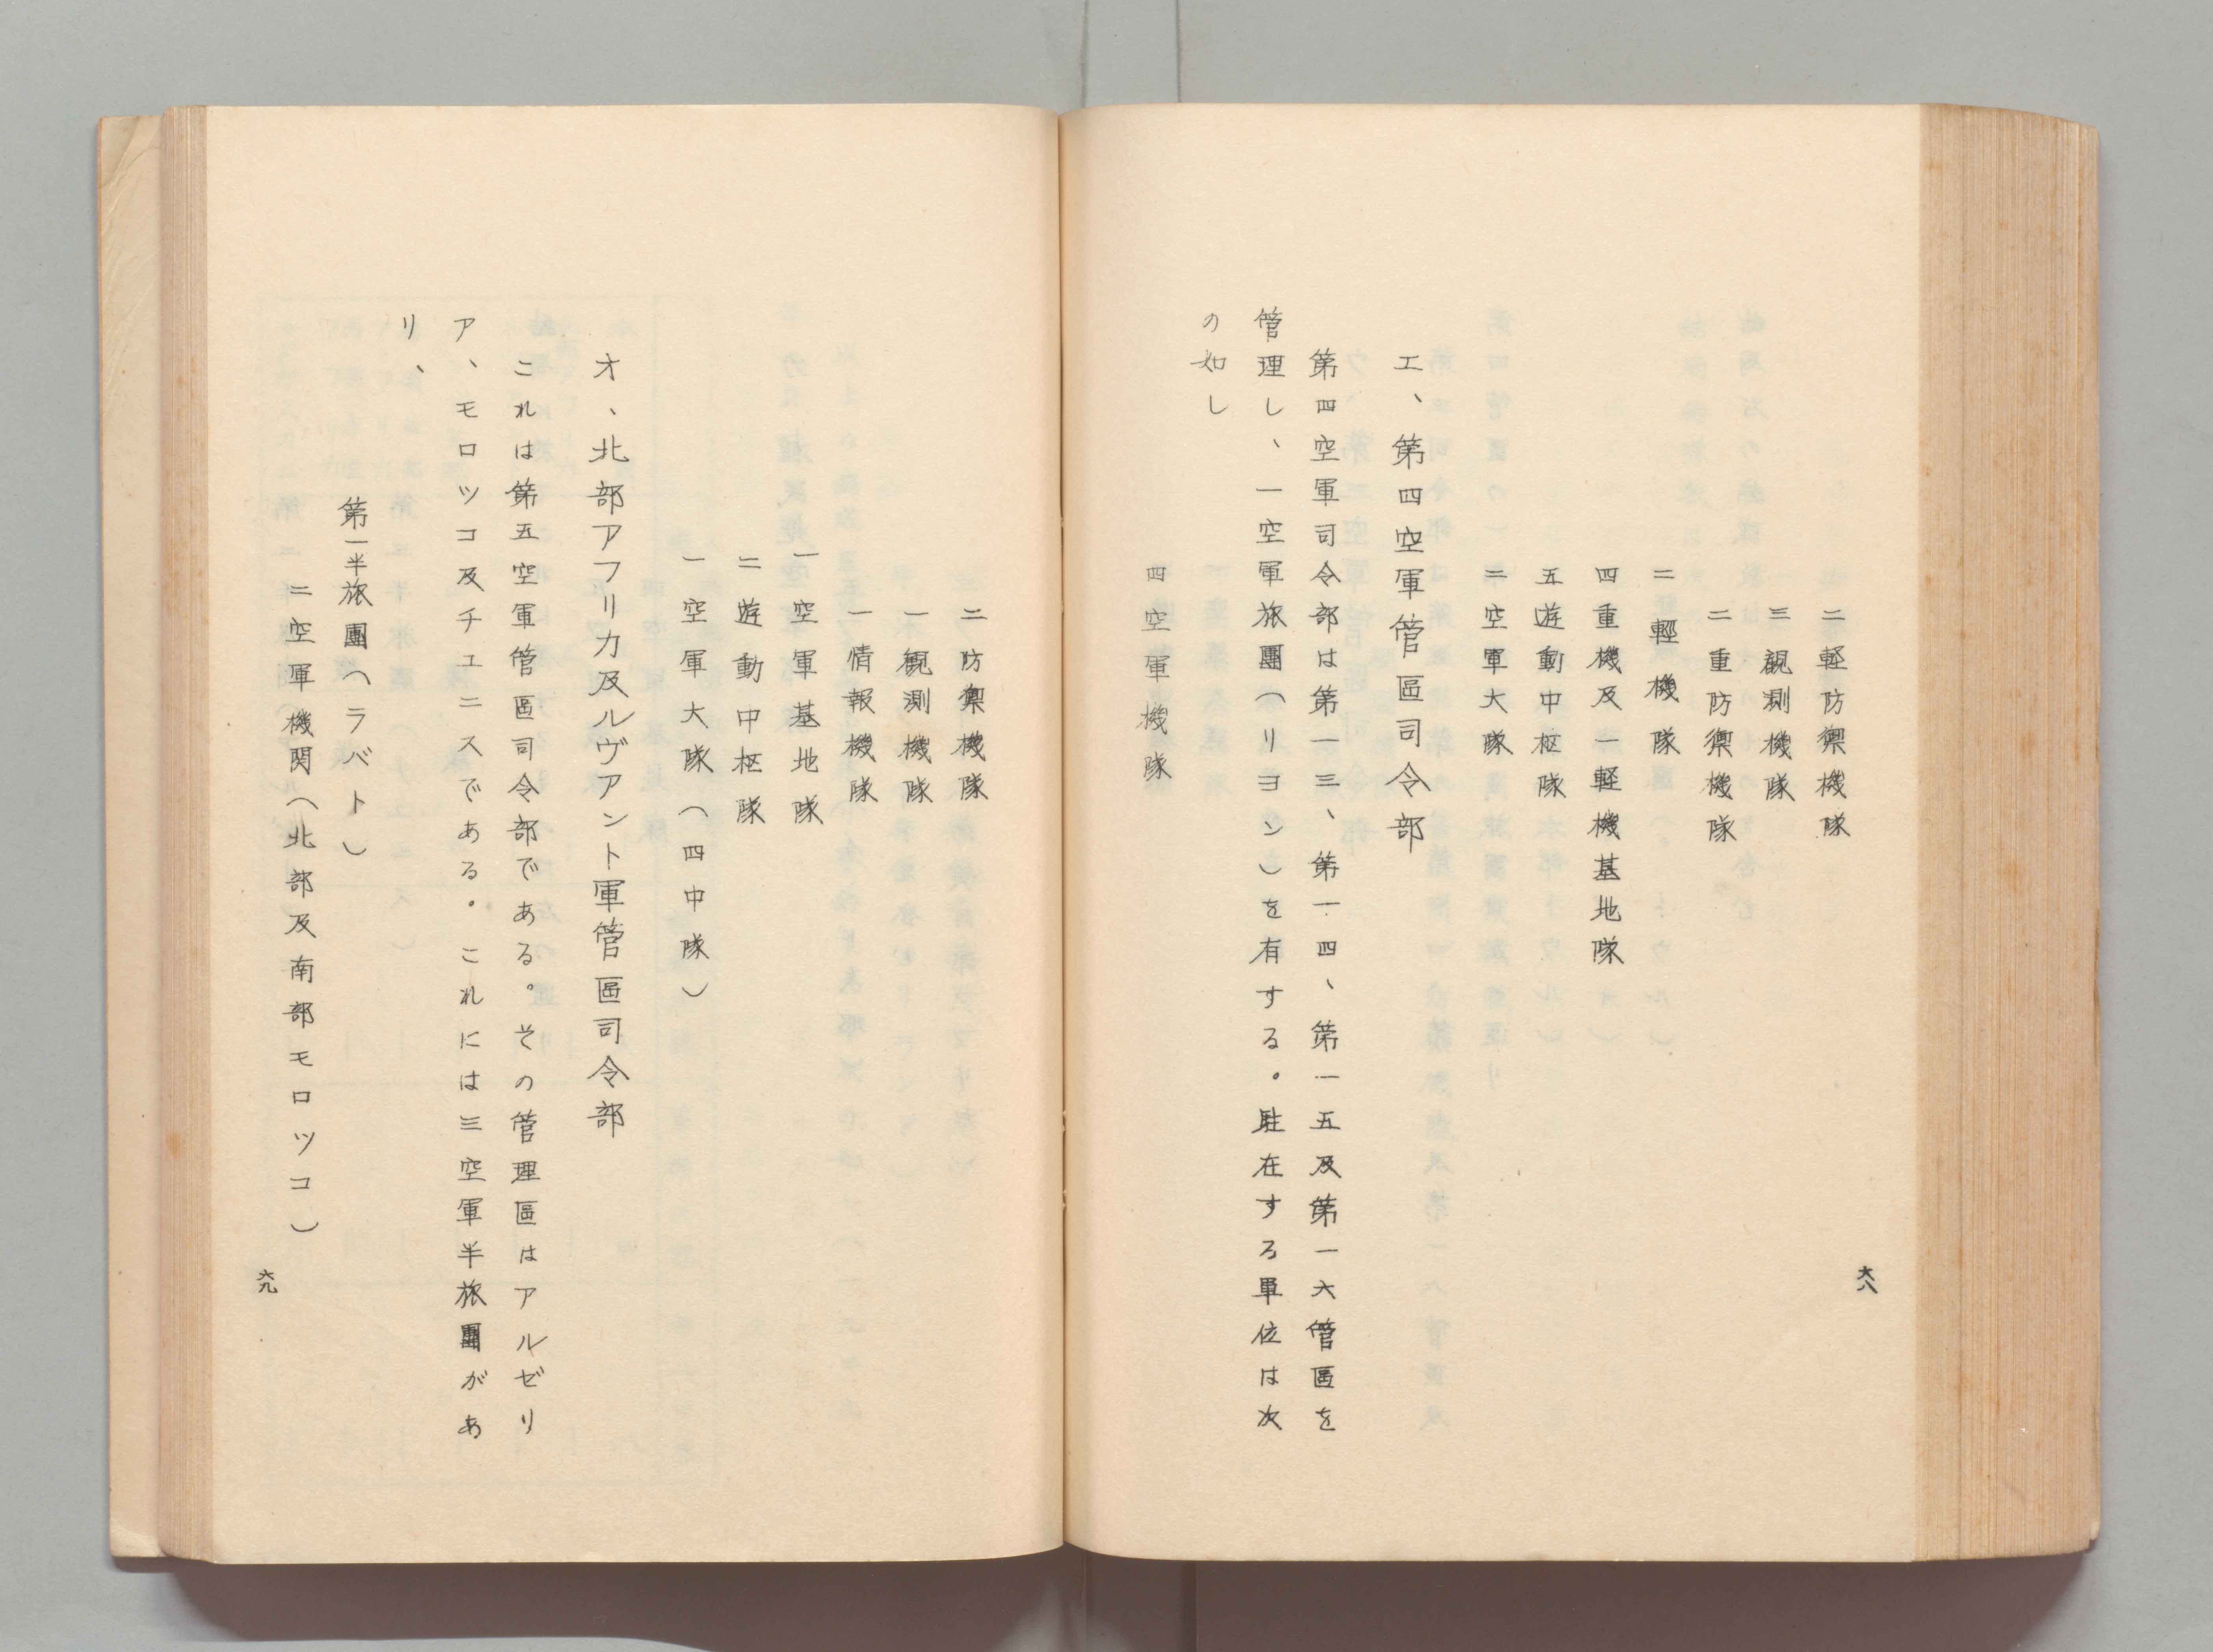 二軽防禦機隊
三観測機隊
二重防禦機隊
二輕機隊
四重機及一軽機基地隊
五遊動中枢隊
二空軍大隊
エ、第四空軍管區司令部
第四空軍司令部は第一三、第一四、第一五及第一六管區を
管理し、一空軍旅團(リヨン)を有する。駐在する單位は次
の如し
四空軍機隊
六八
二防禦機隊
一観測機隊
一情報機隊
一空軍基地隊
二遊動中枢隊
一空軍大隊(四中隊)
オ、北部アフリカ及ルヴアント軍管區司令部
これは第五空軍管區司令部である。その管理區はアルゼリ
ア、モロツコ及チユニスである。これには三空軍半旅團があ
リ、
第一半旅團(ラバト)
二空軍機関(北部及南部モロツコ)
六九